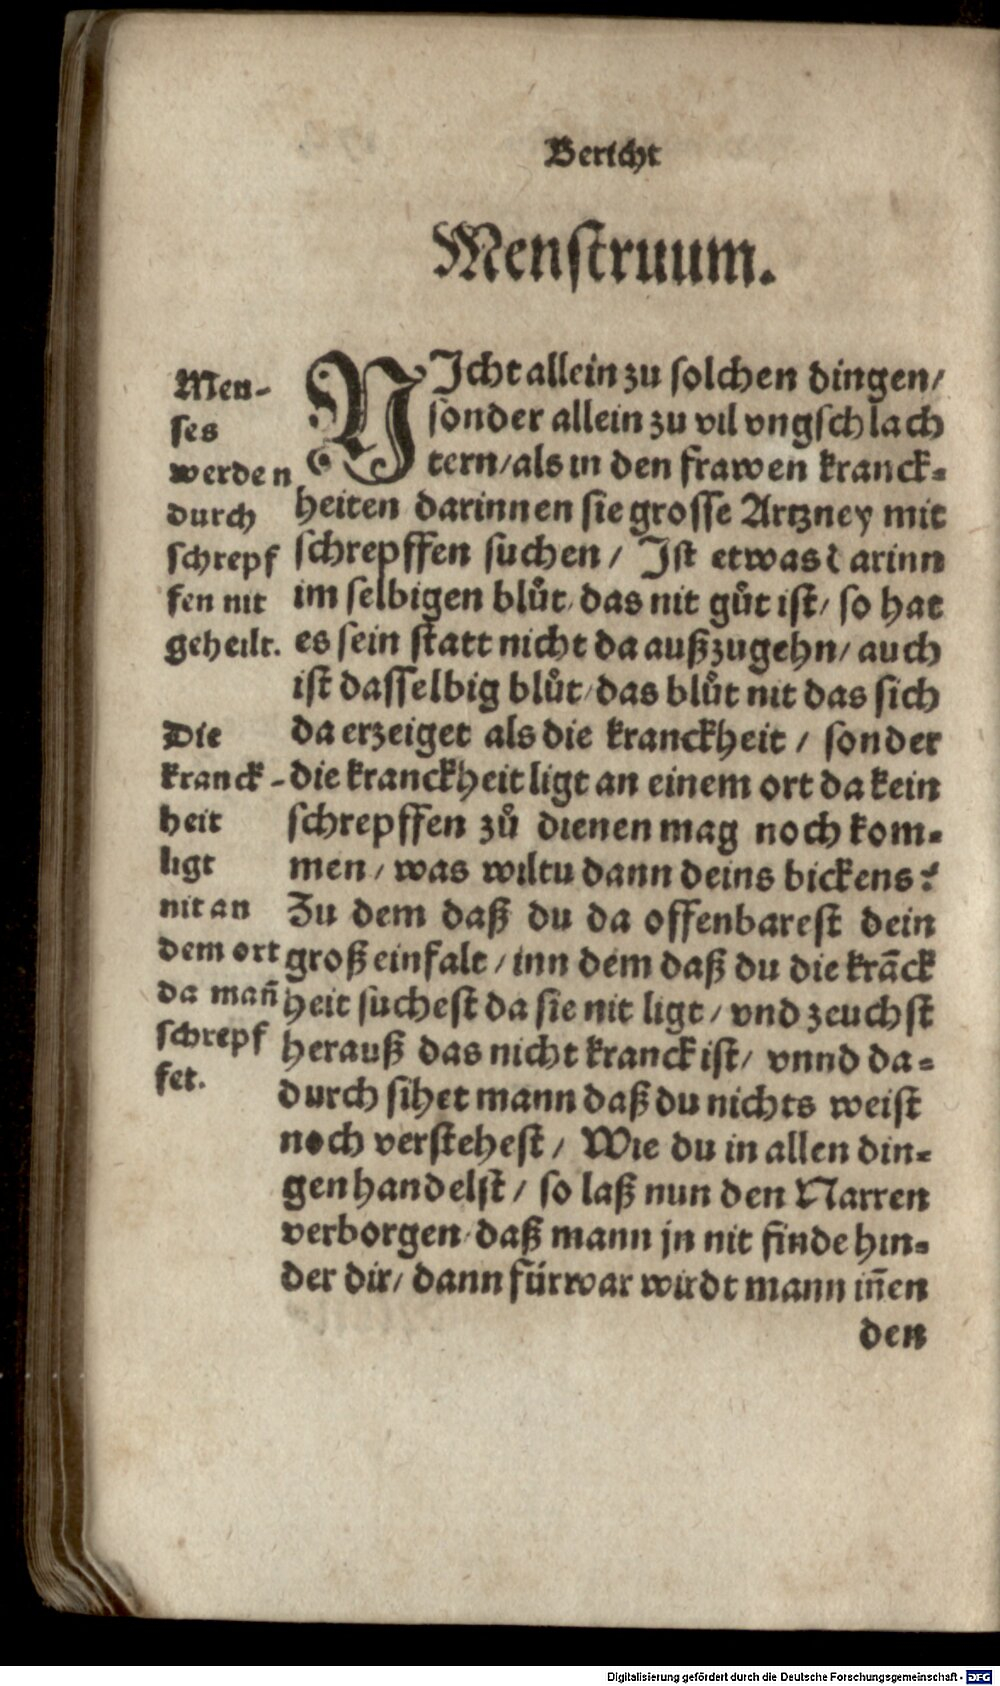 Bericht
Menstruum.
Men-
ses
werden
durch
schrepf
fen nit
geheilt.
Die
kranck-
heit
ligt
nit an
dem ort
da mañ
schrepf
fet.
NJcht allein zu solchen dingen/
sonder allein zu vil vngschlach
tern/als in den frawen kranck-
heiten darinnen sie grosse Artzney mit
schrepffen suchen/ Jst etwas darinn
im selbigen blůt/das nit gůt ist/ so hat
es sein statt nicht da außzugehn/ auch
ist dasselbig blůt/das blůt nit das sich
da erzeiget als die kranckheit/ sonder
die kranckheit ligt an einem ort da kein
schrepffen zů dienen mag noch kom-
men/ was wiltu dann deins bickens?
Zu dem daß du da offenbarest dein
groß einfalt/ inn dem daß du die krãck
heit suchest da sie nit ligt/ vnd zeuchst
herauß das nicht kranck ist/ vnnd da-
durch sihet mann daß du nichts weist
noch verstehest/ Wie du in allen din-
gen handelst/ so laß nun den Narren
verborgen/daß mann jn nit finde hin-
der dir/ dann fürwar wirdt mann iñen
den
Digitalisierung gefördert durch die Deutsche Forschungsgemeinschaft - DFG